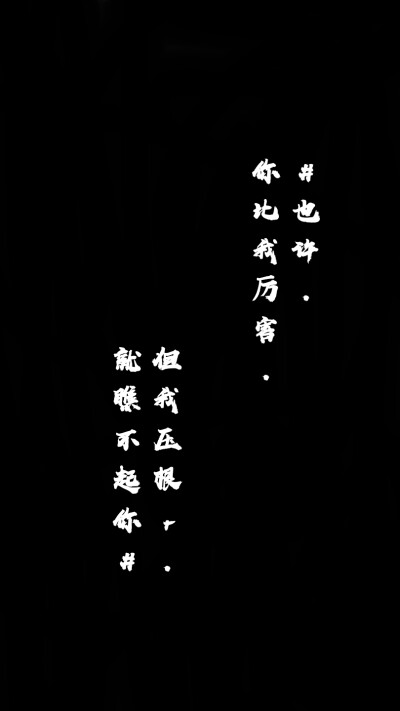 #也许.
你比我厉害.
但我压根r.
就瞧不起你#